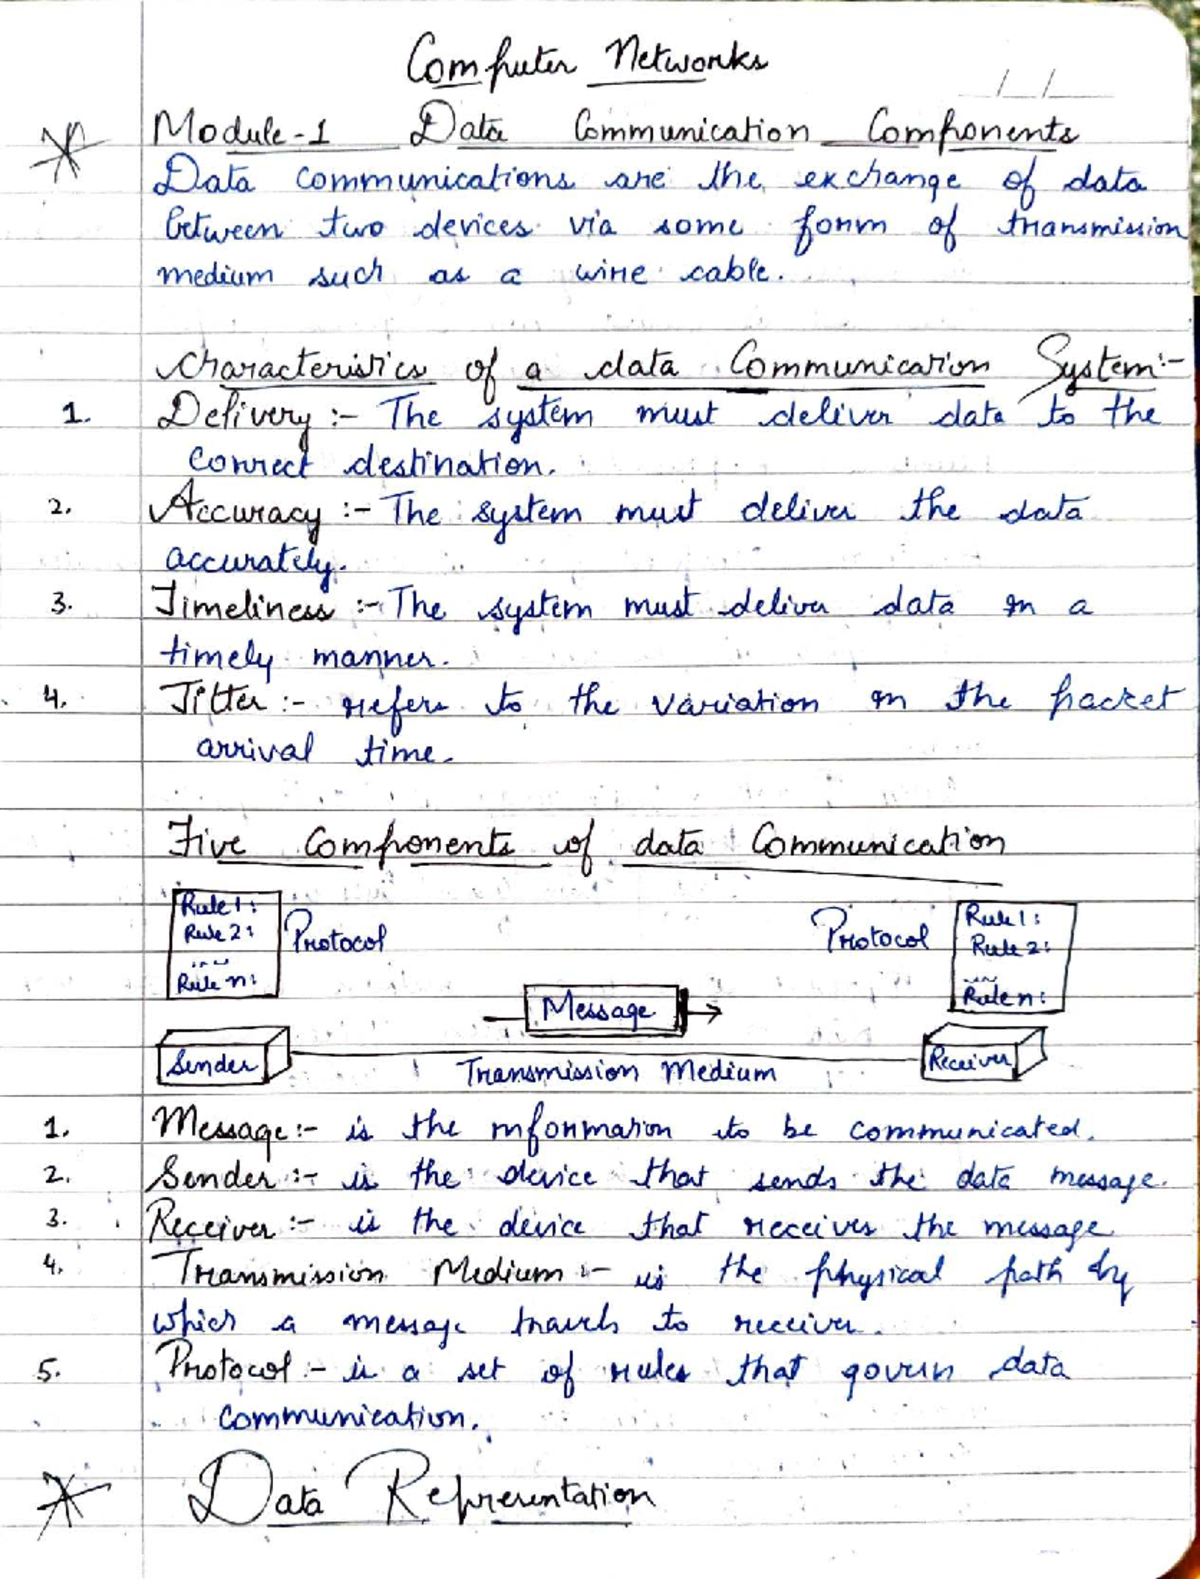 Computer Networks
/ /
Module-1 Data Communication Components
Data communications are the exchange of data
between two devices via some form of transmission
medium such as a wire cable.
Characteristics of a data Communication System:-
1. Delivery :- The system must deliver data to the
correct destination.
2. Accuracy :- The system must deliver the data
accurately.
3. Timeliness :- The system must deliver data in a
timely manner.
4. Jitter :- refers to the variation in the packet
arrival time.
Five Components of data Communication
Rule 1:
Rule 2:
...
Rule n:
Protocol
Protocol
Rule 1:
Rule 2:
...
Rule n:
Message
Sender
Transmission Medium
Receiver
1. Message :- is the information to be communicated.
2. Sender :- is the device that sends the data message.
3. Receiver :- is the device that receives the message
4. Transmission Medium :- is the physical path by
which a message travels to receiver.
5. Protocol :- is a set of rules that govern data
communication.
Data Representation